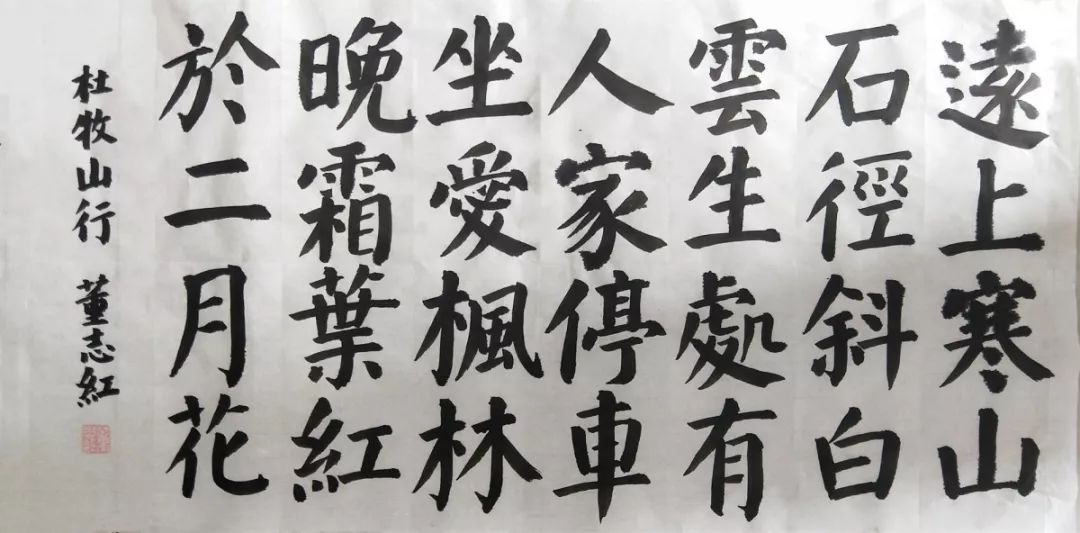 遠上寒山
石徑斜白
雲生處有
人家停車
坐愛楓林
晚霜葉紅
於二月花
杜牧山行 董志紅